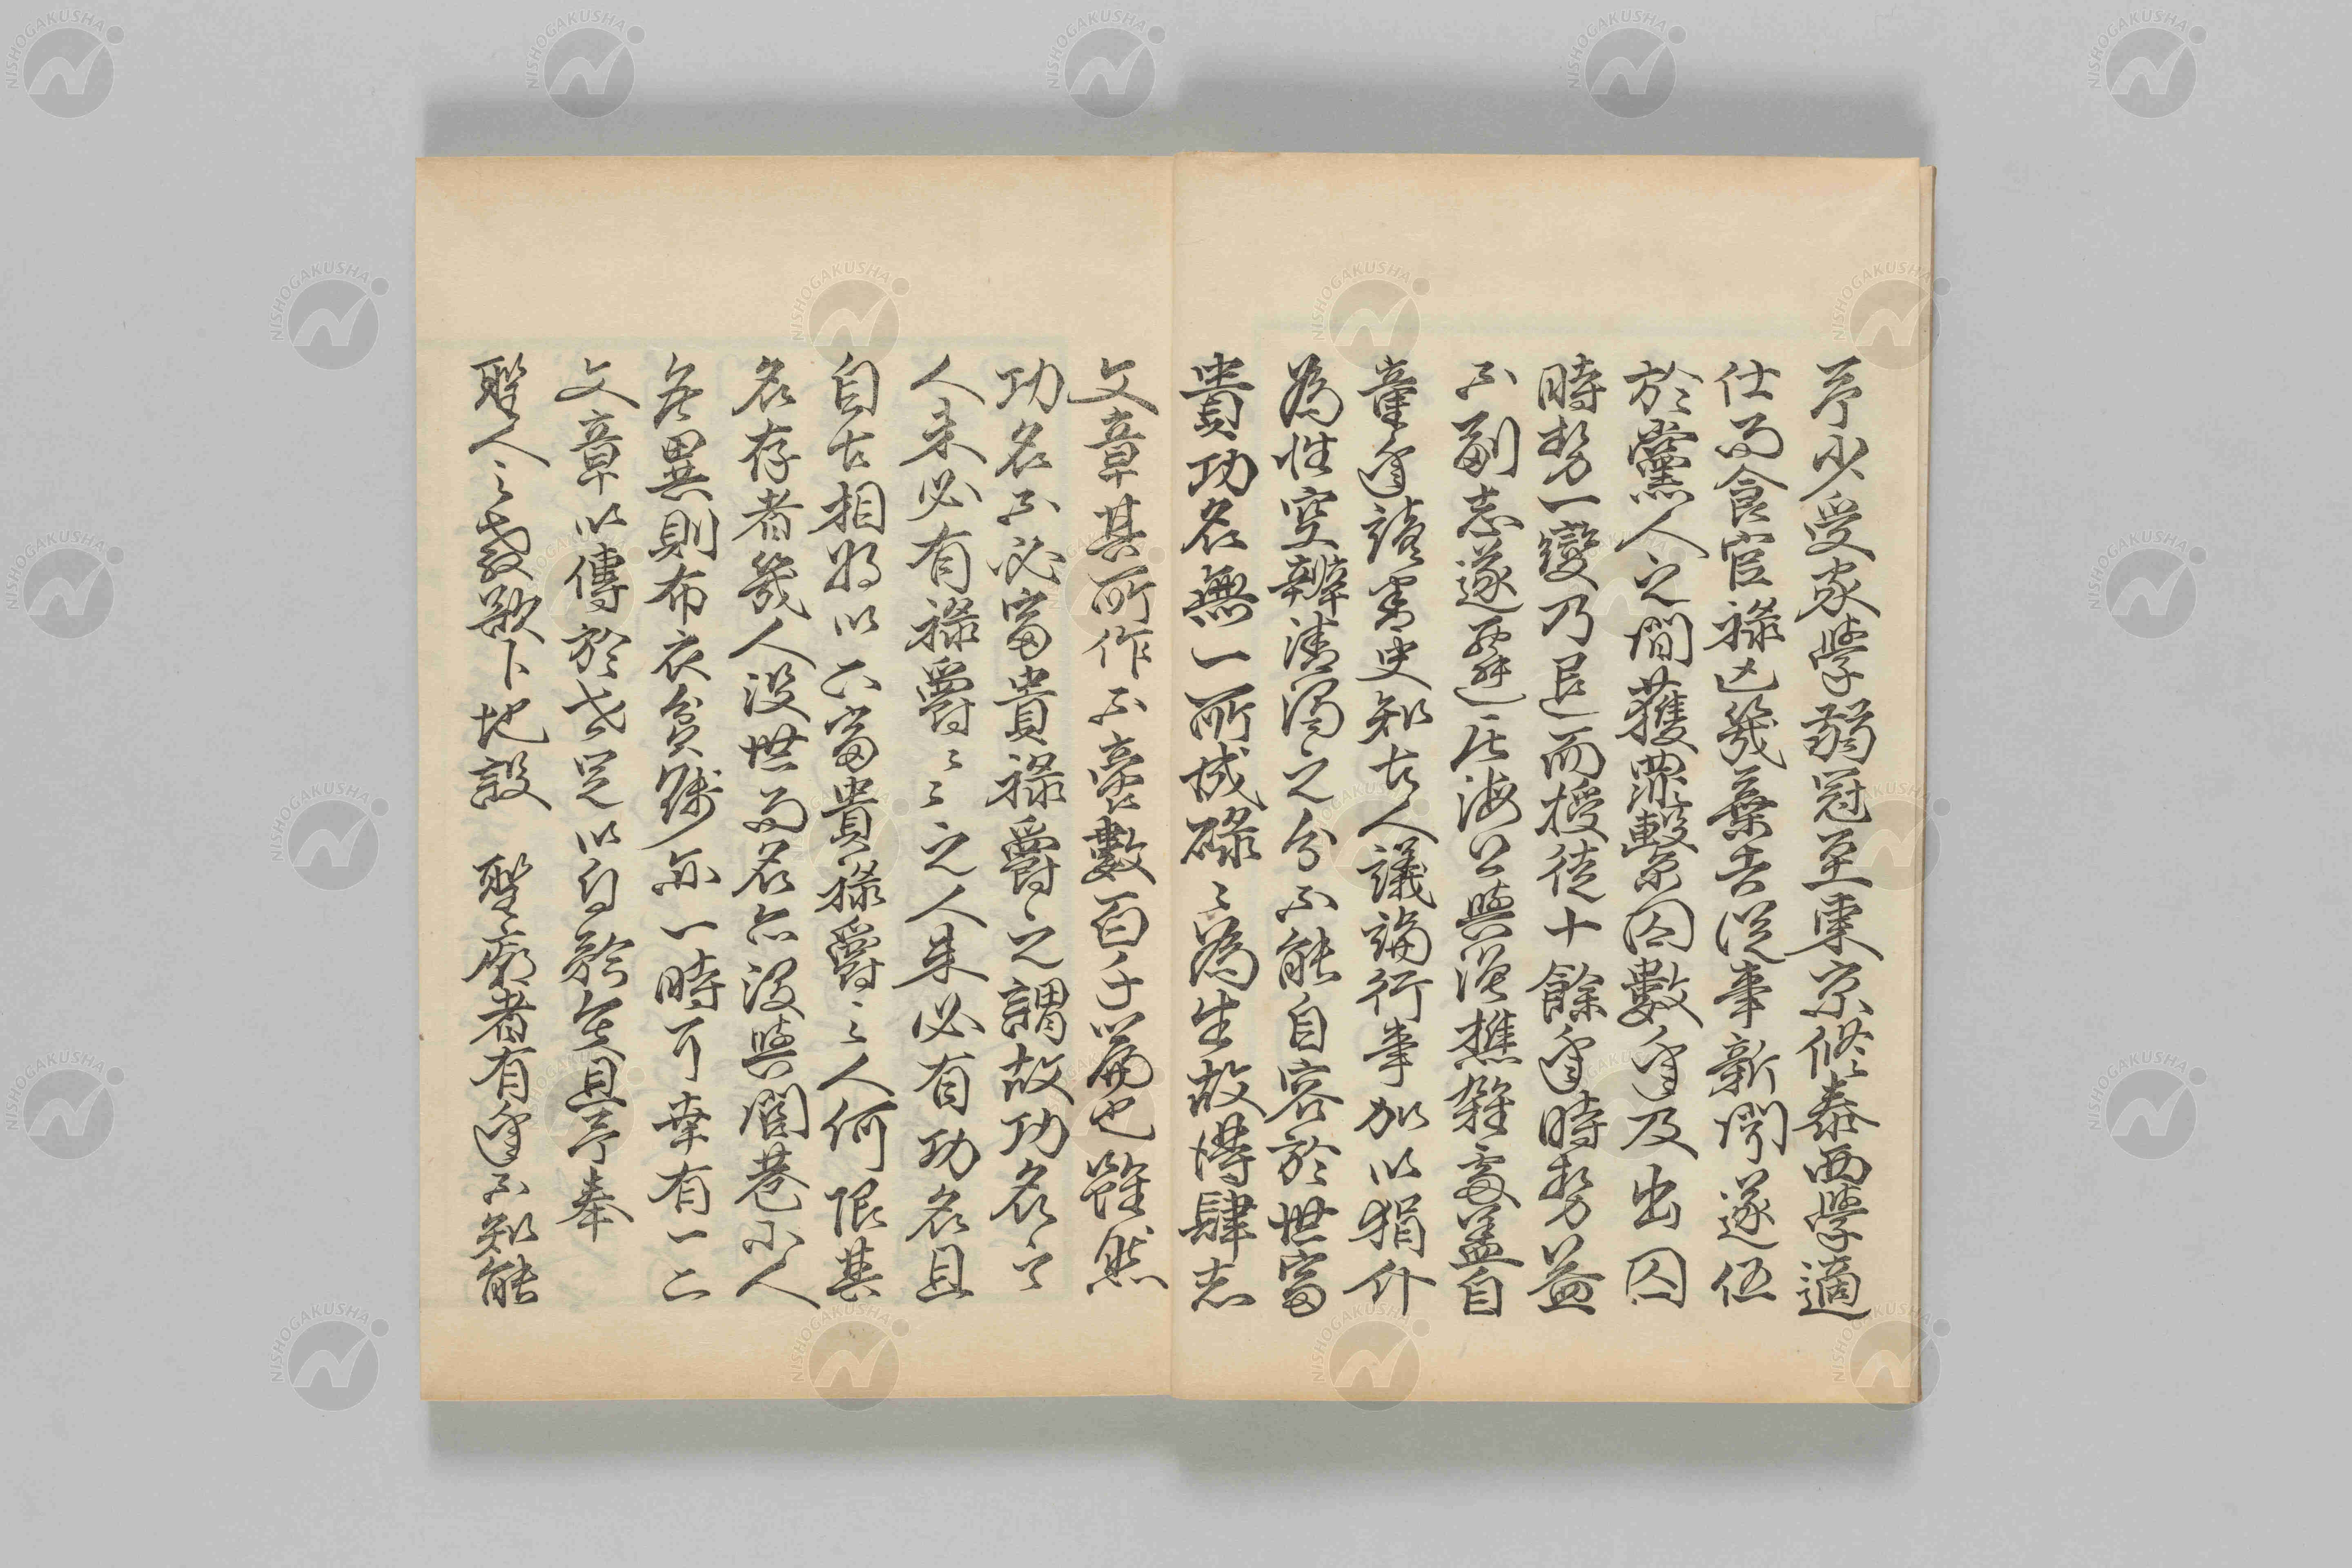 予少受家學弱冠至東京修泰西學適
仕而食官祿亡幾棄去從事新聞遂伍
於黨人之間獲罪繫囚數年及出囚
時勢一變乃退而授徒十餘年時勢益
不副志遂遯迹海與漁樵雜處蓋自
童年讀書史知古人議論行事加以狷介
為性空辨清濁之分不能自容於世富
貴功名無一所成碌々為生故得肆志
文章其所作不啻數百千篇也雖然
功名不必富貴祿爵之謂故功名之
人未必有祿爵々々之人未必有功名且
自古相將以下富貴祿爵之人何限其
名存者幾人沒世而名亦沒與閭巷小人
無異則布衣貧賤亦一時可幸有一二
文章以傳於世足以自矜矣且予奉
聖人之教欲卜地設 聖廟者有年不知能
NISHOGAKUSHA